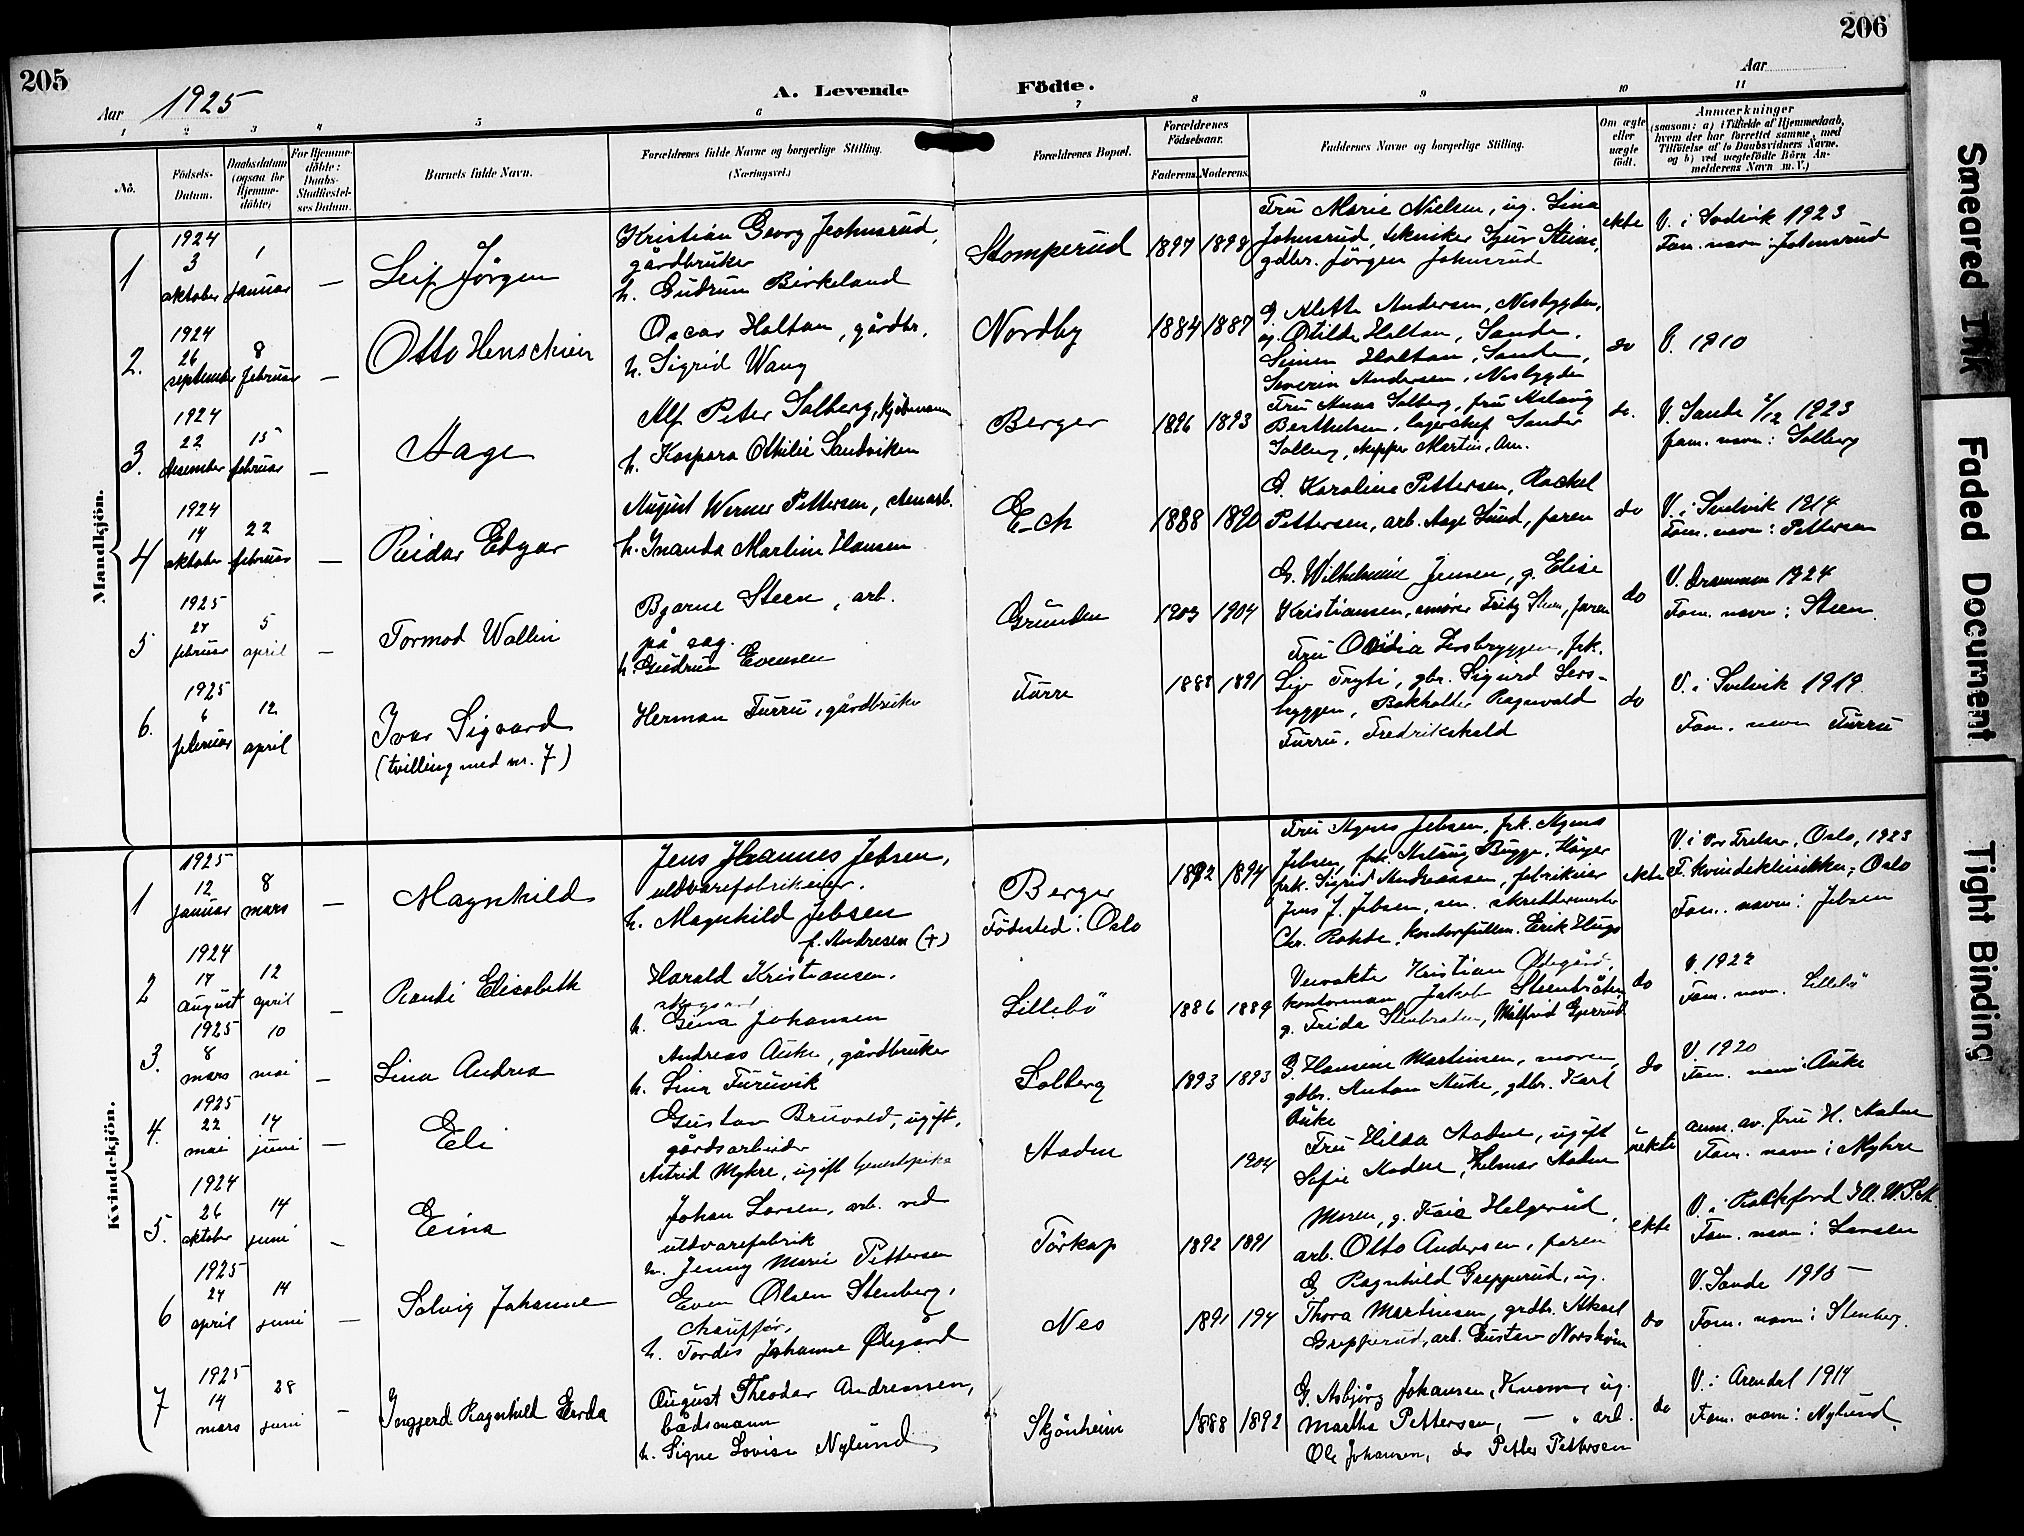 205
206
Aar 1925
A. Levende
Födte.
Aar
1 2 3 4 5 6 7 8 9 10 11
No.
Födsels-
Datum.
Daabsdatum
(ogsaa for
Hjemme-
döbte)
For Hjemme-
döbte:
Daabs-
Stadfæstel-
ses Datum.
Barnets fulde Navn.
Forældrenes fulde Navne og borgerlige Stilling.
(Næringsvei.)
Forældrenes Bopæl.
Forældrenes
Födselsaar.
Faderens. Moderens.
Faddernes Navne og borgerlige Stilling.
Om ægte
eller
uægte
födt.
Anmærkninger
(saasom: a) i Tilfælde af Hjemmedaab,
hvem der har forrettet samme, med
Tilföielse af to Daabsvidners Navne,
og b) ved uægtefödte Börn An-
melderens Navn m. V.)
Mandkjön.
1
1924
3
oktober
1
januar
—
Leif Jörgen
Kristian Georg Johnsrud,
gårdbruker
h. Gudrun Birkeland
Stomperud
1897 1898
Fru Marie Nielsen, ug. Lina
Johnsrud, tekniker Sjur Steine,
gdbr. Jörgen Johnsrud
ekte
V. i Svelvik 1923
Fam. navn: Johnsrud
2.
1924
26
september
8
februar
—
Otto Henschien
Oscar Holtan, gårdbr.
h. Sigrid Wang
Nordby
1884 1887
G. Alette Andersen, Nesbygden,
ug. Otilde Holtan, Sande,
Simen Holtan, Sande,
Severin Andersen, Nesbygden
do
V. 1910
3.
1924
22
desember
15
februar
—
Aage
Alf Peter Solberg, kjöbmann
h. Kaspara Othilie Sandviken
Berger
1896 1893
Fru Anna Solberg, fru Aslaug
Berthelsen, lagerchef Sander
Solberg, skipper Martin
do.
V. Sande 2/12 1923
fam. navn: Solberg
4
1924
14
oktober
22
februar
—
Reidar Edgar
August Werner Pettersen, stenarb.
h. Inanda Martine Hansen
Eck
1888 1890
G. Karoline Pettersen, Rachel
Pettersen, arb. Aage Lund, faren
do
V. i Svelvik 1914
Fam. navn: Pettersen
5
1925
27
februar
5
april
—
Tormod Wallin
Bjarne Steen, arb.
på sag.
h. Gudrun Evensen
Grunden
1903 1904
G. Wilhelmine Jensen, g. Elise
Kristiansen, Fritz Steen, faren
do
V. Drammen 1924
Fam. navn: Steen.
6.
1925
6
februar
12
april
Ivar Sigvard
(tvilling med nr. 7)
Herman Furru, gårdbruker
Furre
1888 1891
Fru Ovidia Lersbryggen, frk.
Tryti, gbr. Sigurd Lers-
bryggen, Bokholder Ragnvald
Furru, Fredrikshald
do
V. i Svelvik 1919.
Fam. navn Furru
Kvindekjön.
1
1925
12
januar
8
mars
—
Magnhild
Jens Johannes Jebsen,
uldvarefabrikeier.
h. Magnhild Jebsen
f. Andresen (+)
Berger
Födested: Oslo
1892 1894
Fru Agnes Jebsen, frk. Agnes
Jebsen, frk. Aslaug Bugge, Höyer
frk. Sigrid Andreassen, fabrikeier
Jens J. Jebsen, sen. skreddermester
Chr. Rohde, kontorfullm. Erik Hugo
ekte
V. i Vor Frelser, Oslo, 1923
F. Kvindeklinikken, Oslo
Fam. navn: Jebsen
2
1924
17
august
12
april
—
Randi Elisabeth
Harald Kristiansen,
h. Gina Johansen
Lillebö
1886 1889
Kristian Ødegård,
kontormann Jakob Stenbråten
g. Frida Stenbraten, Målfrid Gjerrud
do
V. 1922
Fam. navn. Lillebö
3.
1925
8
mars
10
mai
—
Lina Andrea
Andreas Auke, gårdbruker
h. Lina Furuvik
Solberg
1893 1893
G. Hansine Martinsen, moren,
gdbr. Anton Auke, gdbr. Karl
Auke
do
V. 1920
Fam. navn: Auke
4.
1925
22
mai
14
juni
—
Eli
Gustav Bruvold, ugift,
gårdsarbeider
Astrid Myhre, ugift tjenestepike
Aadne
1904
Fru Hilda Aadne, ugift
Sofie Aadne, Helmer Aadne
uekte
anm. av fru H. Aadne
Fam. navn: Myhre
5.
1924
26
oktober
14
juni
—
Eina
Johan Larsen, arb. ved
uldvarefabrik
h. Jenny Marie Pettersen
Törkop
1892 1891
Moren, g. Kaia Helgerud,
arb. Otto Andersen, faren
ekte
V. i Rockford Ill. U.S.A.
Fam. navn: Larsen
6
1925
24
april
14
juni
—
Solvig Johanne
Even Olsen Stenberg,
chauffør,
h. Tordis Johanne Ødegård
Nes
1891 194
G. Ragnhild Grepperud, ug.
Thora Martinsen, grdbr. Aksel
Grepperud, arb. Gustav Norström
do
V. Sande 1915 —
Fam. navn: Stenberg.
7
1925
14
mars
28
juni
—
Ingjerd Ragnhild Gerda
August Theodor Andreassen,
bådsmann
h. Signe Lovise Nylund
Skjönheim
1888 1892
G. Asbjörg Johansen, Knem, ug.
Martha Pettersen, — , arb.
Ole Johansen, do Petter Pettersen
do
V. i Arendal 1914
Fam. navn: Nylund.
Smeared Ink
Faded Document
Tight Binding